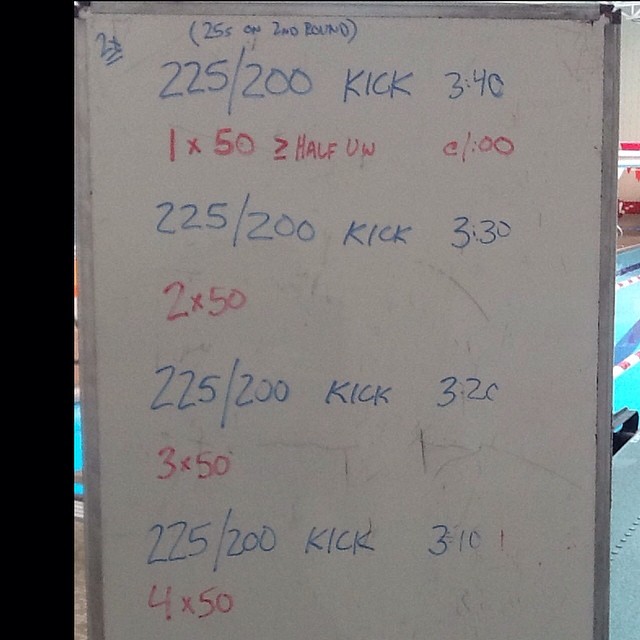 (25s ON 2ND ROUND)
2x
225/200 KICK 3:40
1 x 50 ≥ HALF UW @/:00
225/200 KICK 3:30
2x50
225/200 KICK 3:20
3x50
225/200 KICK 3:10
4x50